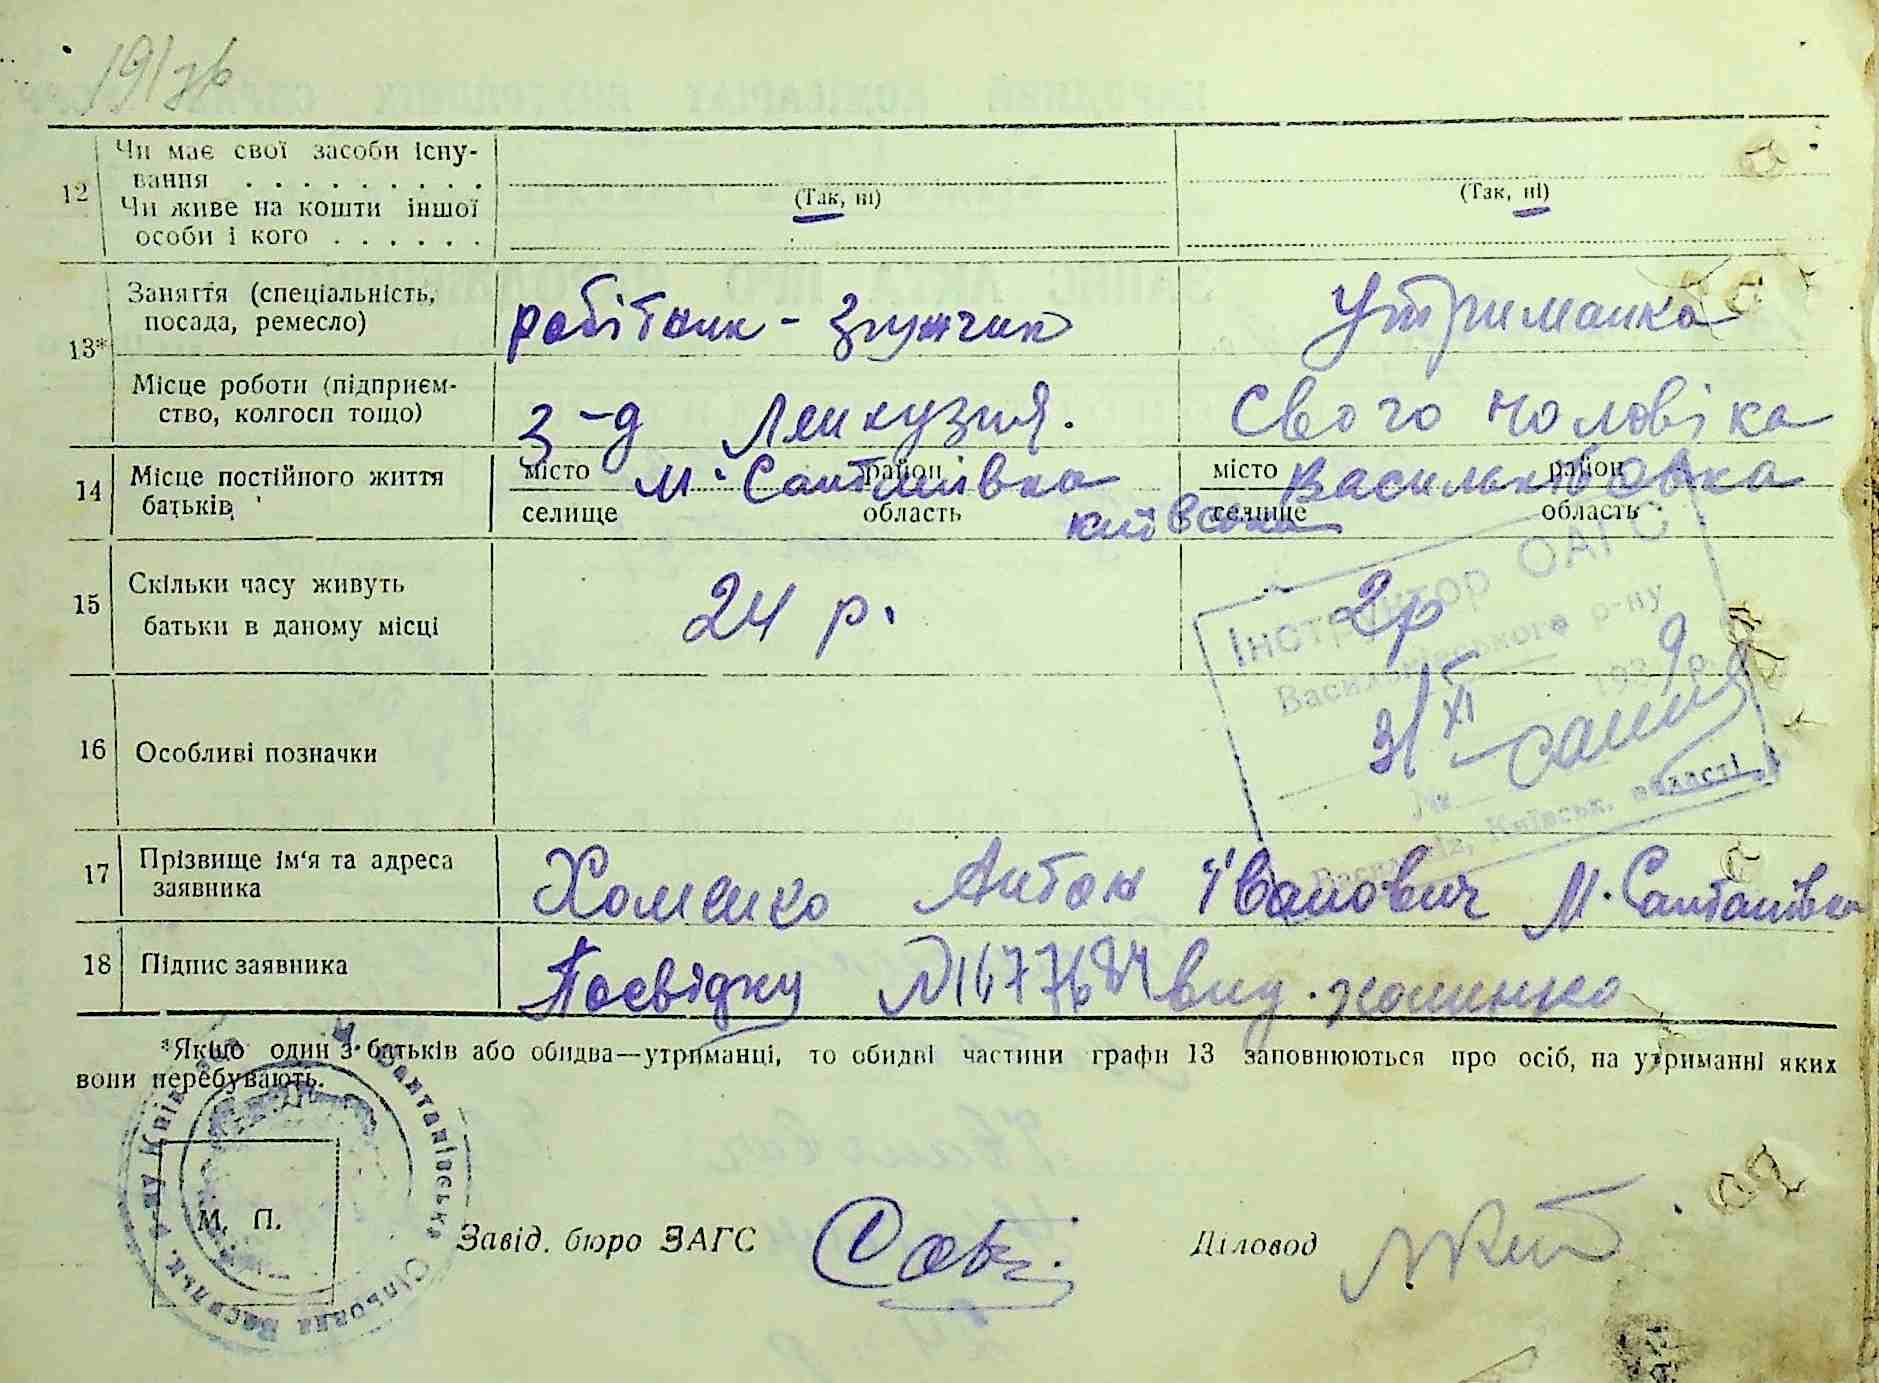 12 Чи має свої засоби існу-
вання . . . . . . . . .
(Так, ні) (Так, ні)
Чи живе на кошти іншої
особи і кого . . . . . .
13* Заняття (спеціальність,
посада, ремесло) робітник - Утриманка
Місце роботи (підприєм-
ство, колгосп тощо) з-д Ленкузня. Свого чоловіка
14 Місце постійного життя
батьків
місто район місто район
м. Салтанівка Васильківска
селище область селище область
київська
15 Скільки часу живуть
батьки в даному місці 24 р. 2р
Інструктор ОАГС
Васильківського р-ну
31 XI 1939 р.
Київськ. області
16 Особливі позначки
17 Прізвище ім'я та адреса
заявника Хоменко Антон Іванович М. Салтанівка
18 Підпис заявника Посвідку №1677684 вид. хоменко
*Якщо один з батьків або обидва—утриманці, то обидві частини графи 13 заповнюються про осіб, на утриманні яких
вони перебувають.
Салтанівська Сільрада Васильк. р-ну Київ
М. П.
Завід. бюро ЗАГС Діловод